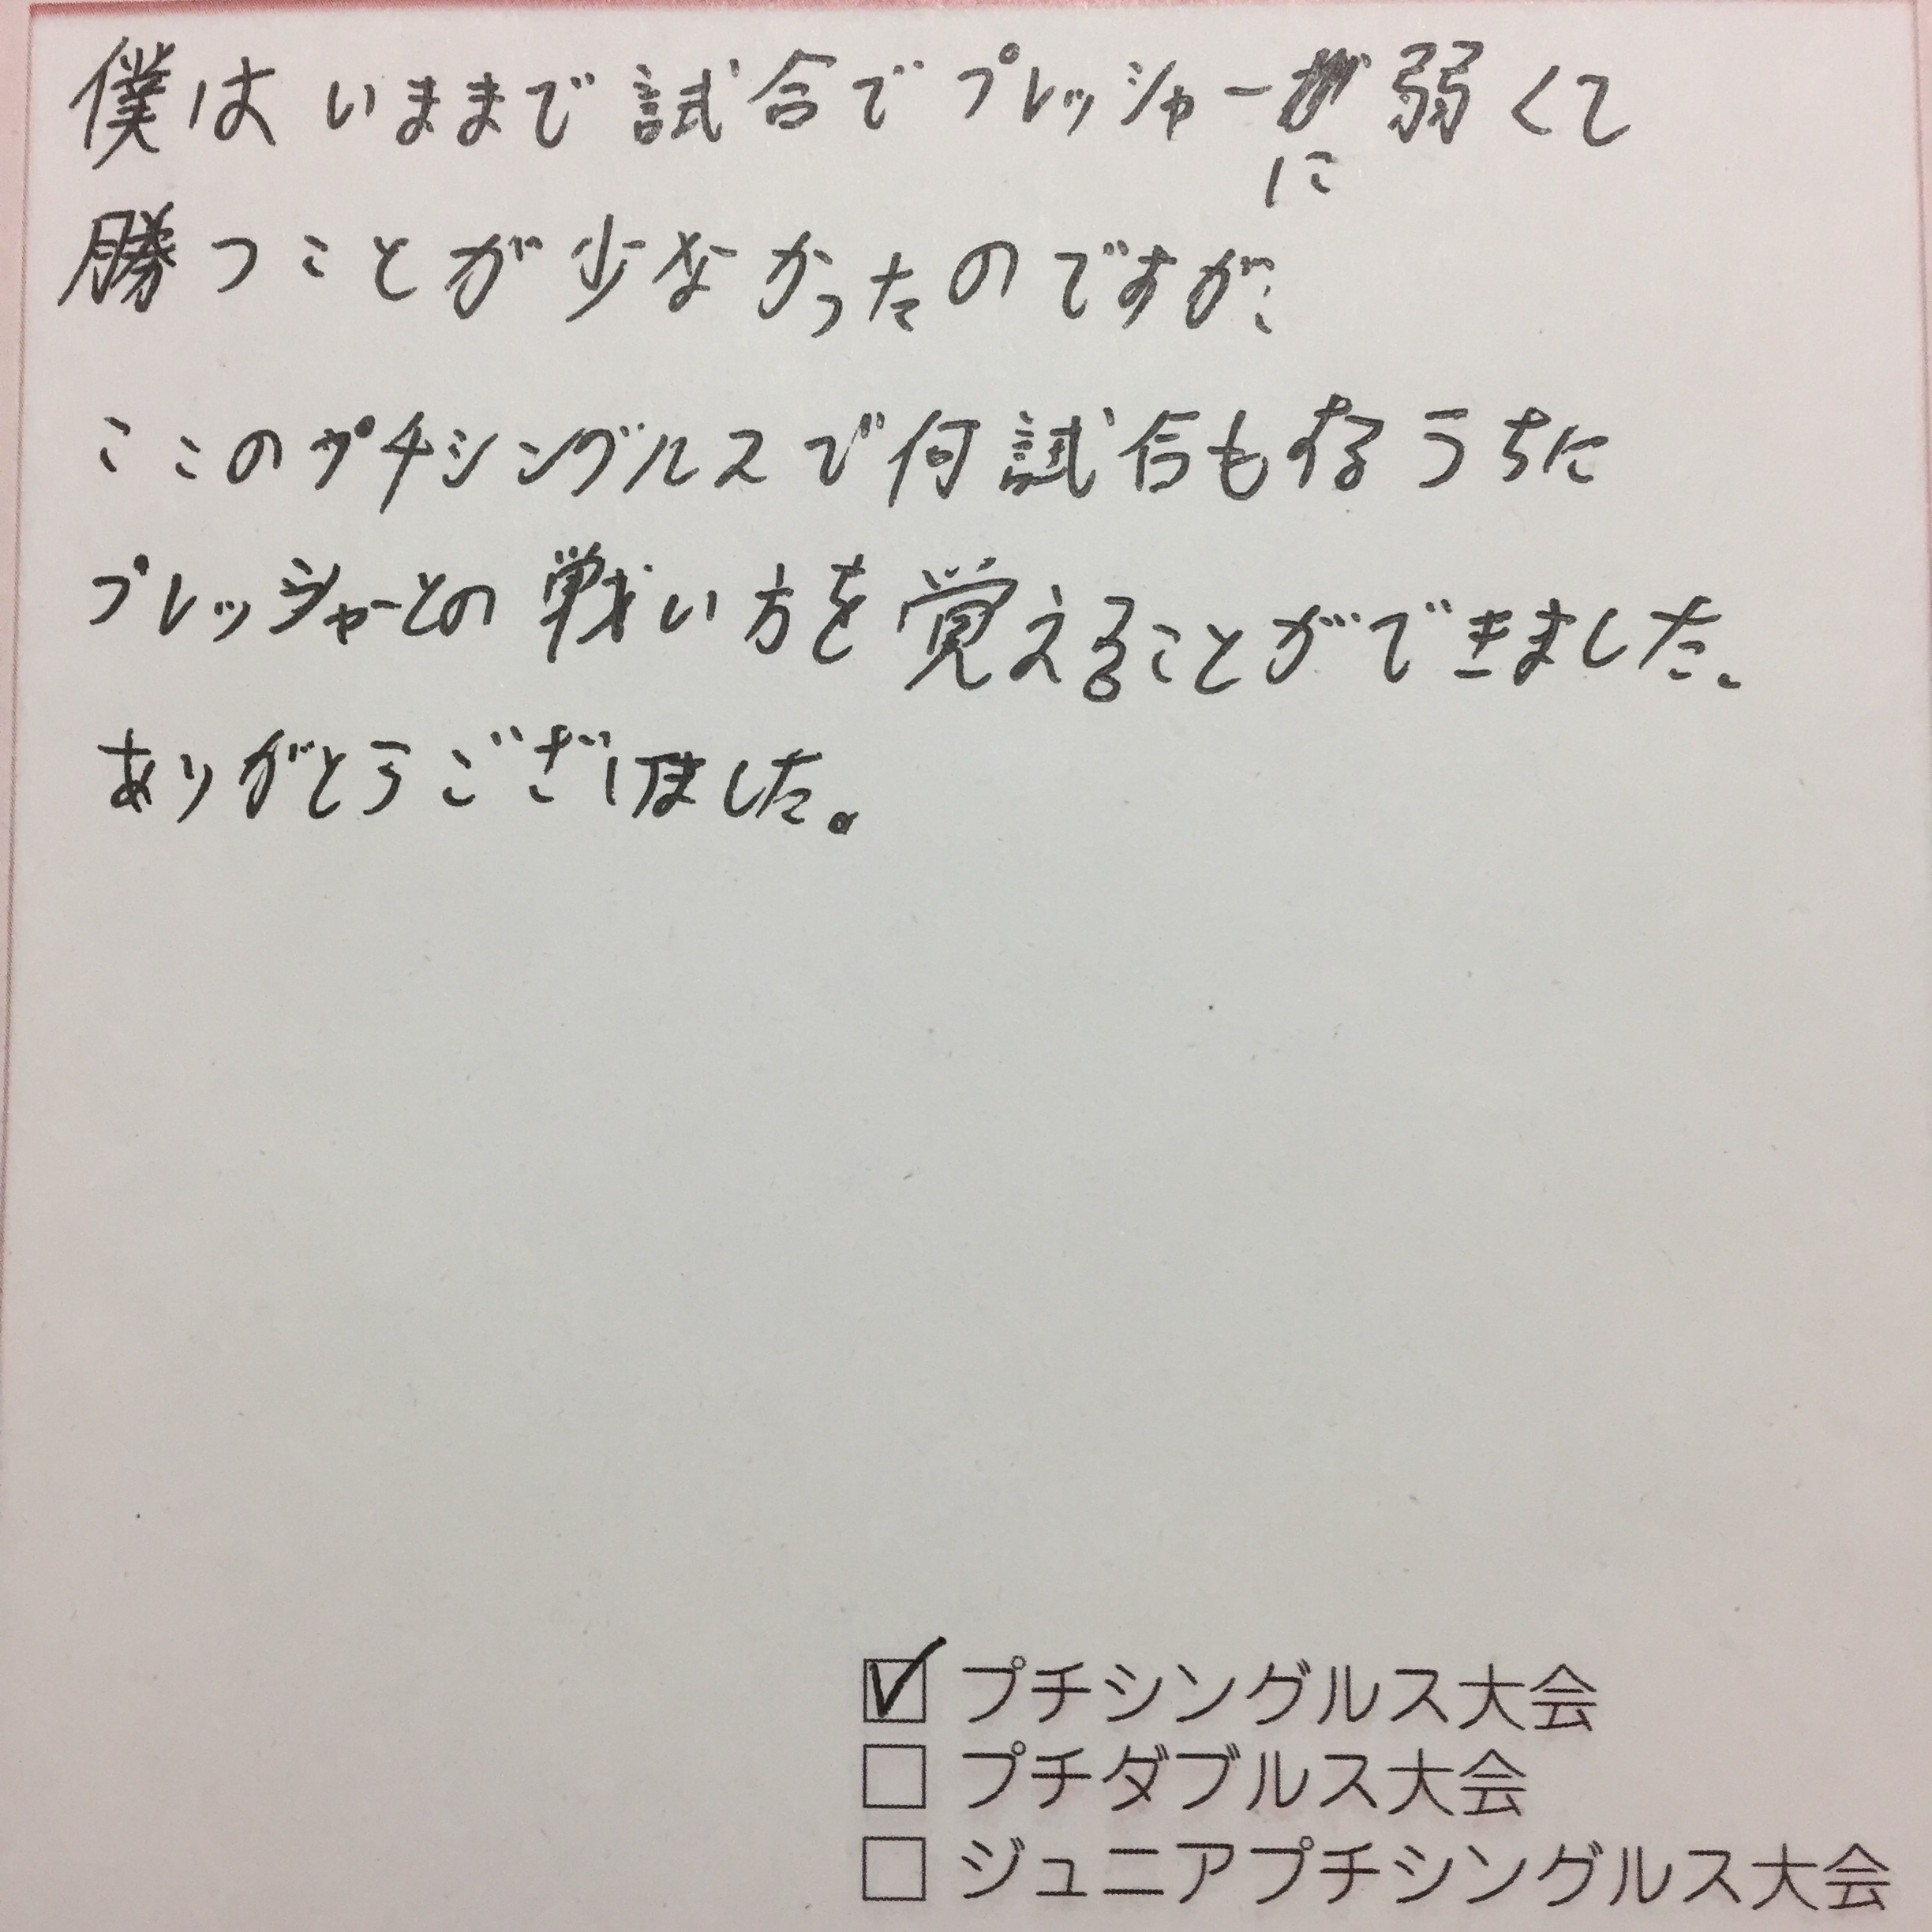 僕はいままで試合でプレッシャーに弱くて
勝つことが少なかったのですが、
ここのプチシングルスで何試合もするうちに
プレッシャーとの戦い方を覚えることができました。
ありがとうございました。
☑ プチシングルス大会
□ プチダブルス大会
□ ジュニアプチシングルス大会